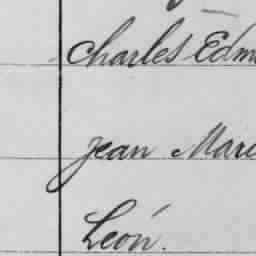 Charles Edm
Jean Mari
Léon.